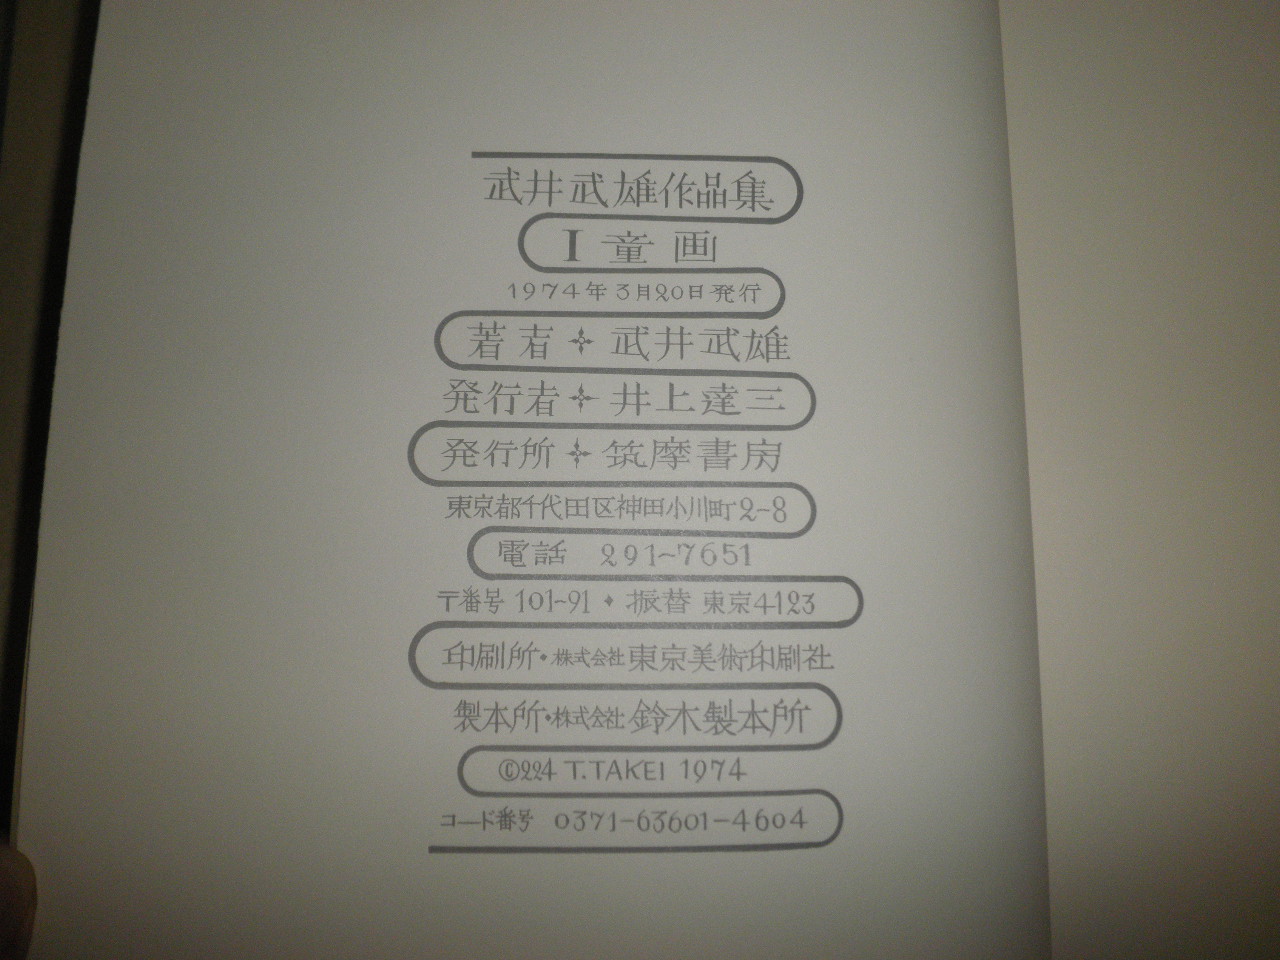 武井武雄作品集
I 童画
1974年3月20日発行
著者 武井武雄
発行者 井上達三
発行所 筑摩書房
東京都千代田区神田小川町2-8
電話 291-7651
〒番号 101-91・振替 東京4123
印刷所・株式会社東京美術印刷社
製本所・株式会社鈴木製本所
©224 T.TAKEI 1974
コード番号 0371-63601-4604